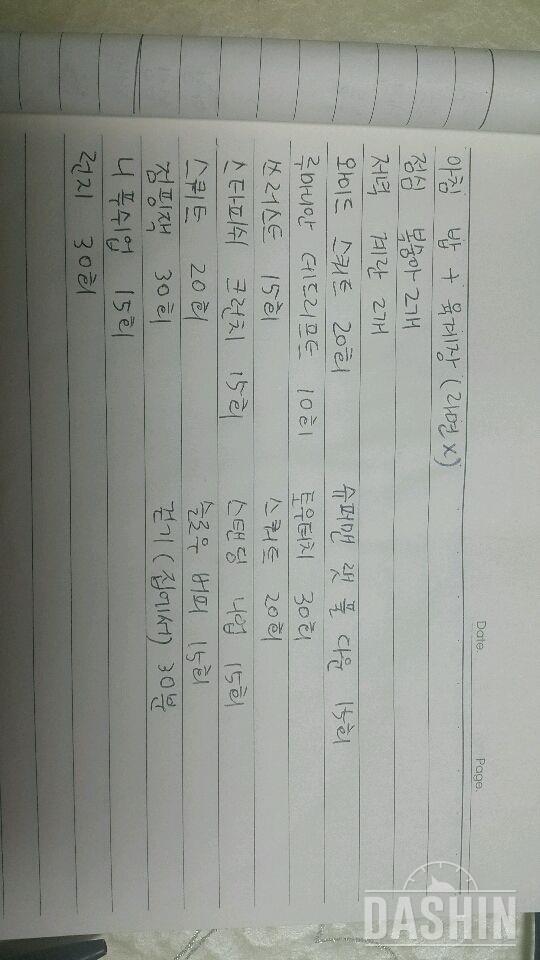 Date. Page.
아침 밥 + 육개장 (라면x)
점심 복숭아 2개
저녁 계란 2개
와이드 스쿼트 20회 슈퍼맨 랫 풀 다운 15회
루마니안 데드리프트 10회 토우터치 30회
쓰러스트 15회 스쿼트 20회
스타피쉬 크런치 15회 스탠딩 니업 15회
스쿼트 20회 슬로우 버피 15회
점핑잭 30회 걷기 (집에서) 30분
니 푹쉬업 15회
런지 30회
DASHIN